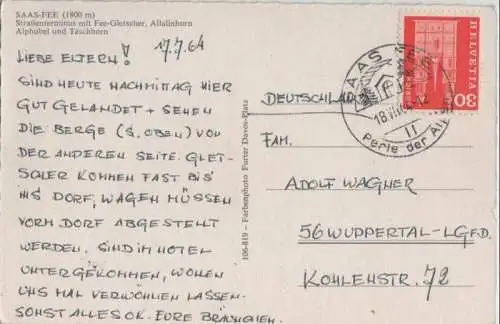 SAAS-FEE (1800 m)
Straßenterminus mit Fee-Gletscher, Allalinhorn
Alphubel und Täschhorn
17.7.64
LIEBE ELTERN!
SIND HEUTE NACHMITTAG HIER
GUT GELANDET + SEHEN
DIE BERGE (S. OBEN) VON
DER ANDEREN SEITE. GLET-
SCHER KOMMEN FAST BIS
INS DORF, WAGEN MÜSSEN
VORM DORF ABGESTELLT
WERDEN. SIND IM HOTEL
UNTERGEKOMMEN, WOLLEN
UNS MAL VERWÖHNEN LASSEN.
SONST ALLES OK. EURE BRÄUNCHEN.
106-819 – Farbenphoto Furter Davos-Platz
SAAS-FEE
18.VII.64-12
11
Perle der Alpen
HELVETIA
30
DEUTSCHLAND
FAM.
ADOLF WAGNER
56 WUPPERTAL-LGFD.
KOHLENSTR. 72